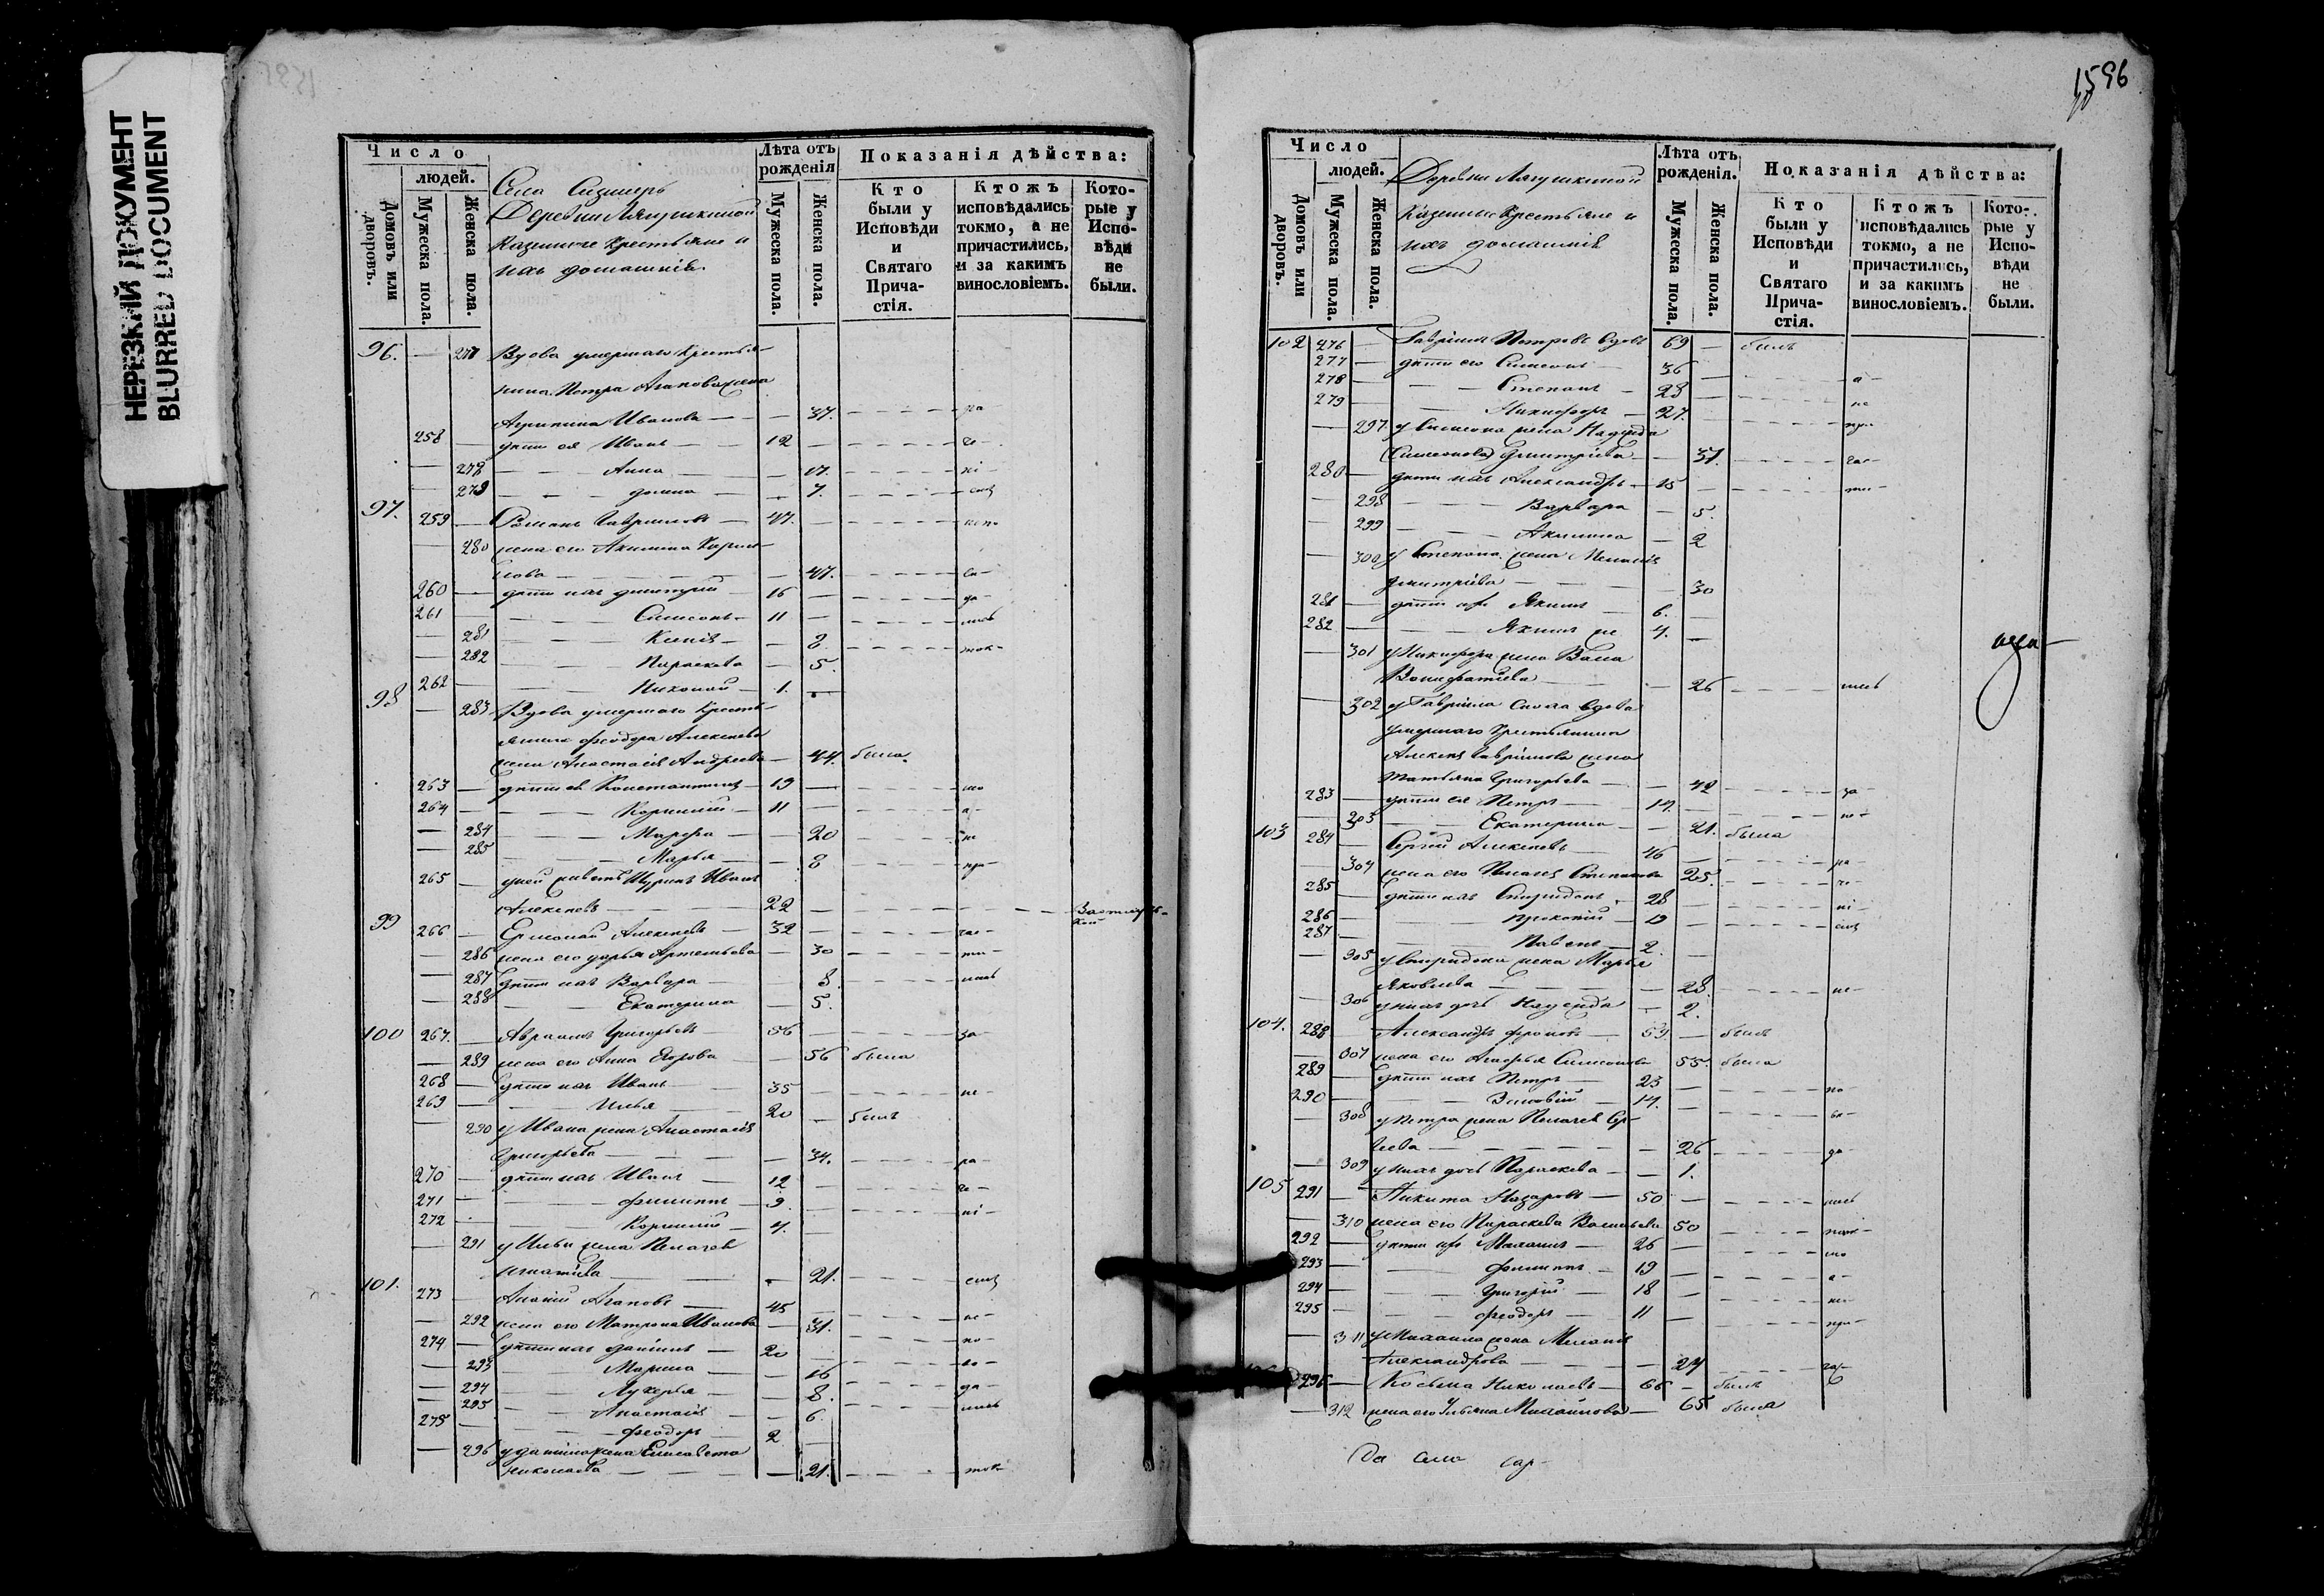 НЕРЕЗКИЙ ДОКУМЕНТ
BLURRED DOCUMENT
Число
людей.
Домовъ или дворовъ.
Мужеска пола.
Женска пола.
Села
Деревни Лягушкиной
Казенные крестьяне и
ихъ домашніе
Лѣта отъ рожденія
Мужеска пола.
Женска пола.
Показанія дѣйства:
Кто были у Исповѣди и Святаго Прича-стія.
Ктожъ исповѣдались токмо, а не причастились, и за какимъ винословіемъ.
Кото-рые у Испо-вѣди не были.
96. — 277 Вдова умершаго крестья-
нина Петра Агапова жена
Агрипина Иванова — 37. ра
258 — дѣти ея Иванъ — 12 — че
— 278 — Анна — 17. — ні
— 279 — Домна — 7. — емъ
97. 259 — Романъ Гавриловъ — 47. —
— 280 жена его Акилина Кирил-
лова — 47.
260 — дѣти ихъ Дмитрий — 16 —
261 — Симеонъ — 11 —
— 281 — Ксенія — 8.
— 282 — Параскева — 5.
262 — Николай — 1. —
98 — 283 Вдова умершаго крестья-
янина Феодора Алексеева
жена Анастасія Андреева — 44. была
263 — дѣти ея Константинъ — 19 —
264 — Корнилий — 11 — а
— 284 — Марфа — 20 не
— 285 — Марья — 8 при
265 — Иванъ
Алексеевъ — 22 —
99 266 — Ермолай Алексеевъ — 32 — час
— 286 жена его Дарья Артемьева — 30 ти
— 287 дѣти ихъ Варвара — 8. лись
— 288 — Екатерина — 5.
100 267. — Авраамъ Григорьевъ — 56 — за
— 289 жена его Анна Егорова — 56 была
268 — дѣти ихъ Иванъ — 35 — не
269 — Илья — 20 — былъ
— 290 у Ивана жена Анастасія
Григорьева — 34. ра
270 — дѣти ихъ Иванъ — 12 че
271 — Филиппъ — 9. ні
272 — Корнилий — 4. —
— 291 у Ильи жена Пелагея
Игнатіева — 21. емъ
101. 273 — Ананій Агаповъ — 45 —
— 292 жена его Матрона Иванова — 31.
274 — дѣти ихъ Даніилъ — 20
— 293 — Марина — 16
— 294 — Лукерья — 8. да
— 295 — Анастасія — 6. лись
275 — Феодоръ — 2
— 296 у Даніила жена Елисавета
Николаева — 21. ток
1596
Число
людей.
Домовъ или дворовъ.
Мужеска пола.
Женска пола.
Деревни Лягушкиной
Казенные крестьяне и
ихъ домашніе
Лѣта отъ рожденія.
Мужеска пола.
Женска пола.
Показанія дѣйства:
Кто были у Исповѣди и Святаго Прича-стія.
Ктожъ исповѣдались токмо, а не причастились, и за какимъ винословіемъ.
Кото-рые у Испо-вѣди не были.
102 276 — Гавріилъ Петровъ вдовъ 69 — былъ
277 — дѣти его Симеонъ — 36 — а
278 — Степанъ — 28 — не
279 — Никифоръ — 27. при
— 297. у Симеона жена Надежда
(Симеонова) Дмитріева — 37. час
280 — дѣти ихъ Александръ — 15 ти
298 — Варвара — 5.
— 299 — Акилина — 2
— 300 у Степана жена Меланія
Дмитріева — 30
281 — дѣти ихъ Якимъ — 6.
282 — Якимъ же 4. —
— 301 у Никифора жена
Вонифатіева — 26 лись
— 302 у Гавріила сноха вдова
умершаго крестьянина
Алексея Гавріилова жена
Татьяна Григорьева — 42 за
283 — дѣти ея Петръ — 14. не
— 303 — Екатерина — 21. была
103 284 — Сергій Алексеевъ — 46 ра
— 304 жена его Пелагея Степанова 25. че
285 — дѣти ихъ Спиридонъ — 28 ні
286 — Прокопій — 19 емъ
287 — Павелъ — 2.
— 305 у Спиридона жена Марья
Яковлева — 28.
— 306 у нихъ дочь Надежда — 2.
104. 288 Александръ Фроловъ — 59. — былъ
— 307 жена его Агафья Симеонова 55. была
289 — дѣти ихъ Петръ — 23 —
290 — Зиновій — 14. —
— 308 у Петра жена Пелагея Сер-
геева — 26 да
— 309 у нихъ дочь Параскева — 1.
105 291 — Никита Назаровъ — 50 — лись
— 310 жена его Параскева Васильева 50 ток
292 — дѣти ихъ Михаилъ — 26 — мо
293 — Филиппъ — 19 — а
294 — Григорій — 18 — не
295 — Феодоръ — 11 — при
— 311 у Михаила жена Меланія
Александрова — 24 час
296 — Косьма Николаевъ — 66 — былъ
— 312 жена его Ульяна Михайлова — 65 была